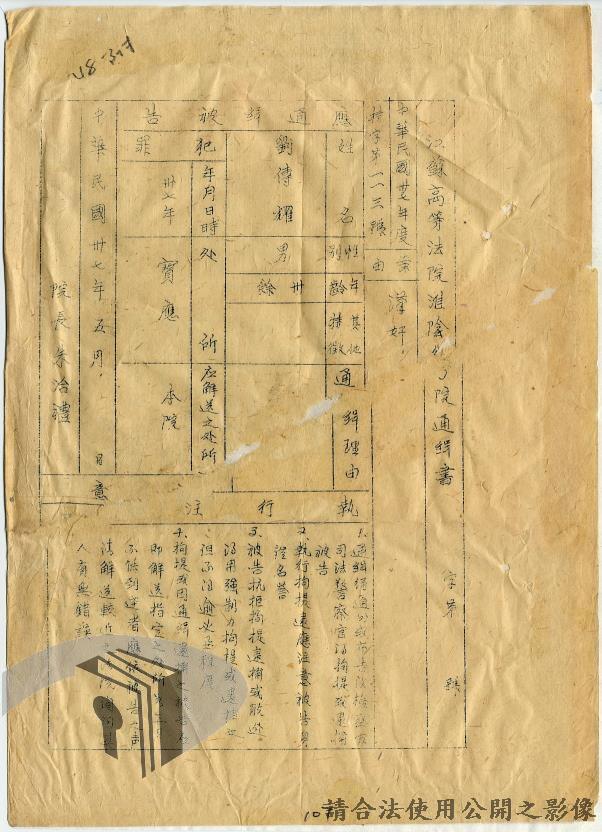 蘇高等法院淮陰分院通緝書
字第 號
中華民國卅七年度
特字第一一三號
案由
漢奸
應通緝被告
姓名
劉傳耀
性別
男
年齡
卅餘
其他特徵
通緝理由
犯罪
年月日時
卅七年
处所
寶應
应解送之处所
本院
中華民國卅七年五月 日
院長朱治禮
執行注意
司法警察官得拘提或逕捕
被告
2、執行拘提逮捕應注意被告身
體名譽
3、被告抗拒拘提逮捕或脫逃
得用強制力拘提或逮捕之
但不得逾必要程度
4、拘提或因通緝逮捕之被告应
即解送指定之处所如三日
不能到達者應依被告之声
請解送較近之法院訊問其
人有無錯誤
請合法使用公開之影像